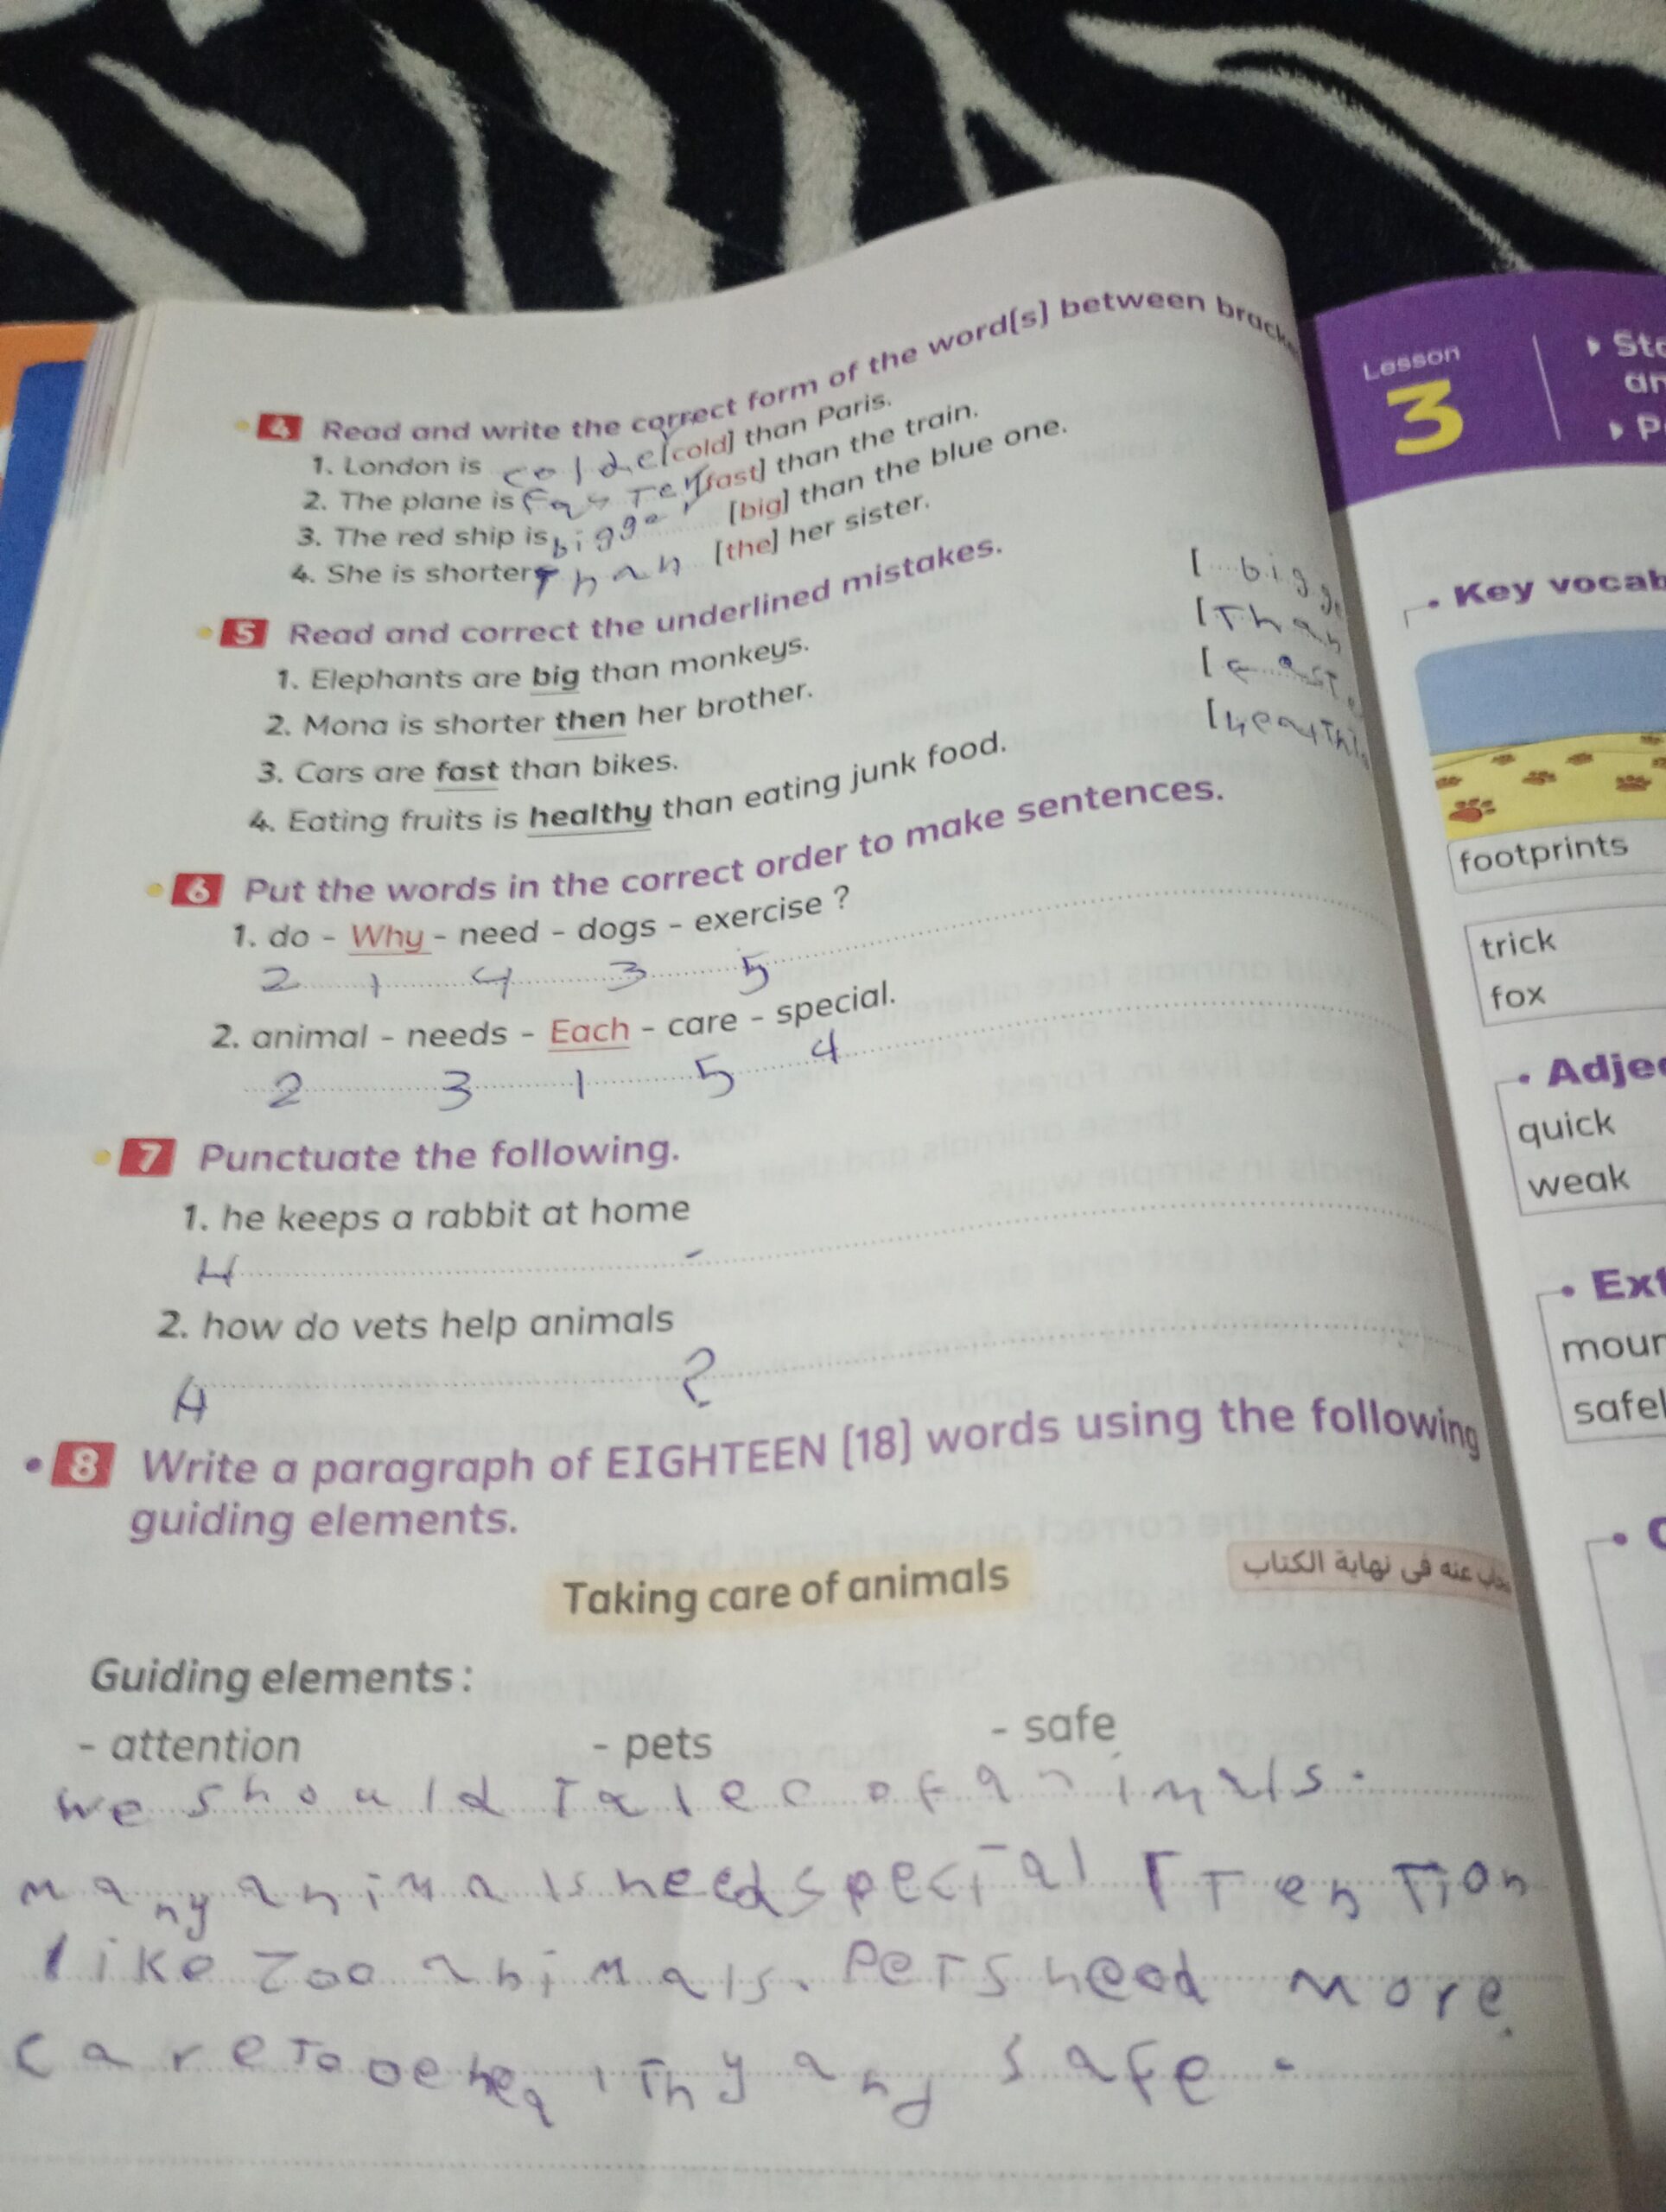 4 Read and write the correct form of the word(s) between
1. London is colde [cold] than Paris.
2. The plane is Faster [fast] than the train.
3. The red ship is bigger [big] than the blue one.
4. She is shorter Than [the] her sister.
5 Read and correct the underlined mistakes.
1. Elephants are big than monkeys. [
2. Mona is shorter then her brother. [Than
3. Cars are fast than bikes. [
4. Eating fruits is healthy than eating junk food. [
6 Put the words in the correct order to make sentences.
1. do - Why - need - dogs - exercise ?
2 1 4 3 5
2. animal - needs - Each - care - special.
2 3 1 5 4
7 Punctuate the following.
1. he keeps a rabbit at home
H
2. how do vets help animals
H ?
8 Write a paragraph of EIGHTEEN [18] words using the following
guiding elements.
Taking care of animals
عنه فى نهاية الكتاب
Guiding elements :
- attention - pets - safe
we should of animals.
many animals need special TTenTion
like zoo animals. PeTs need more
care To and safe .
Lesson
3
Key
footprints
trick
fox
quick
weak